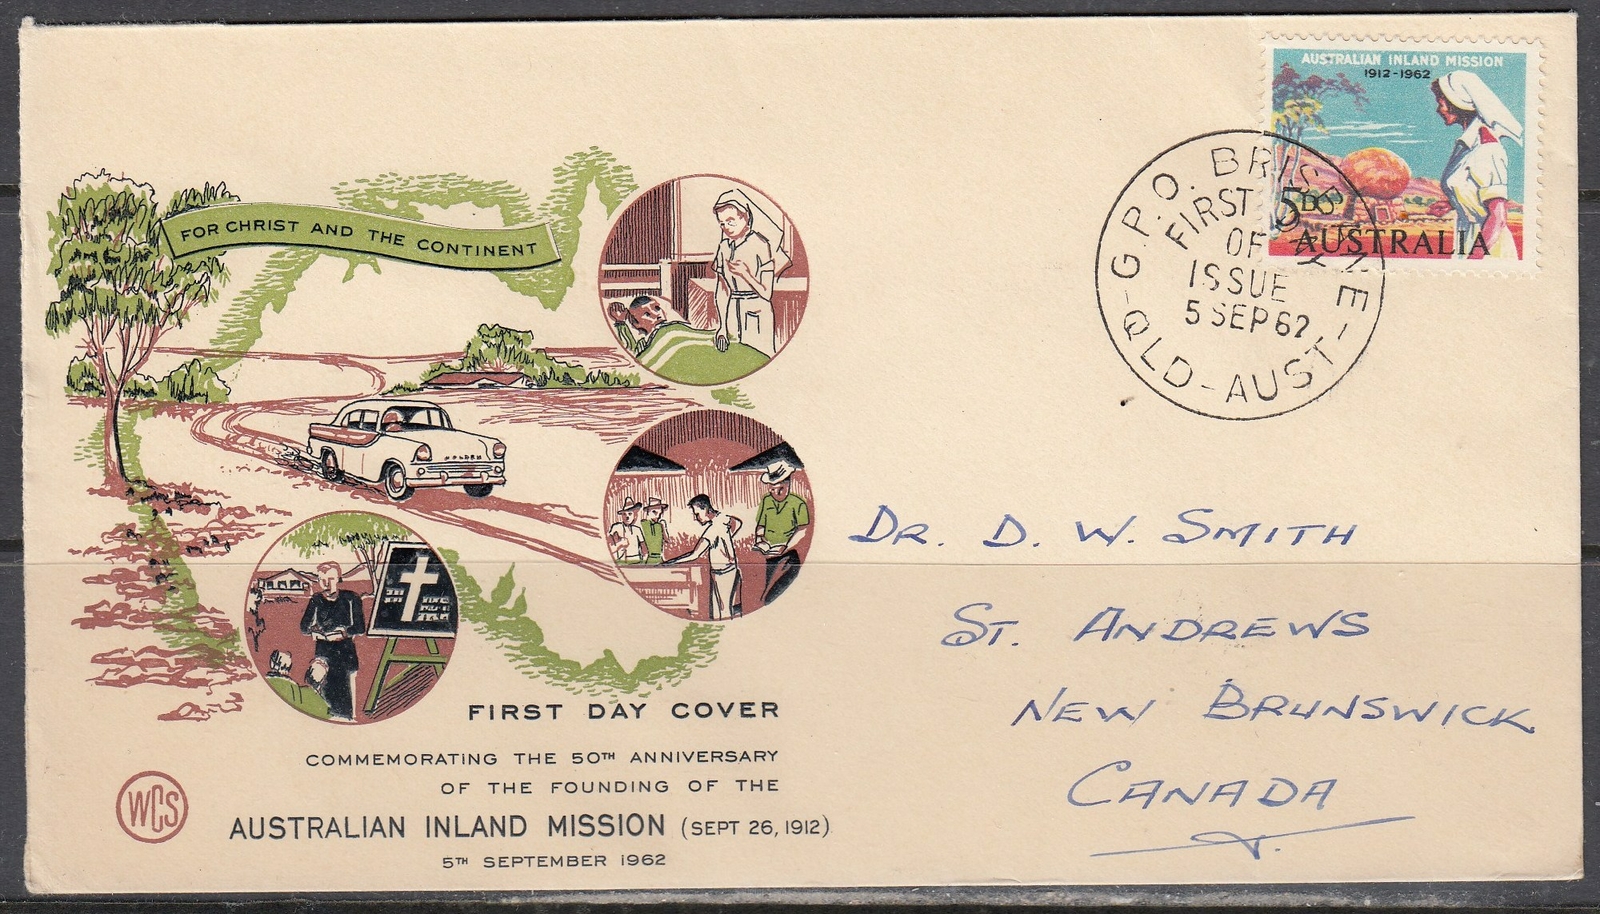 AUSTRALIAN INLAND MISSION
1912-1962
5D
AUSTRALIA
G.P.O. BRISBANE
FIRST DAY
OF
ISSUE
5 SEP 62
QLD-AUST-
FOR CHRIST AND THE CONTINENT
HOLDEN
DR. D. W. SMITH
ST. ANDREWS
NEW BRUNSWICK
CANADA
FIRST DAY COVER
COMMEMORATING THE 50TH ANNIVERSARY
OF THE FOUNDING OF THE
AUSTRALIAN INLAND MISSION (SEPT 26, 1912)
5TH SEPTEMBER 1962
WCS